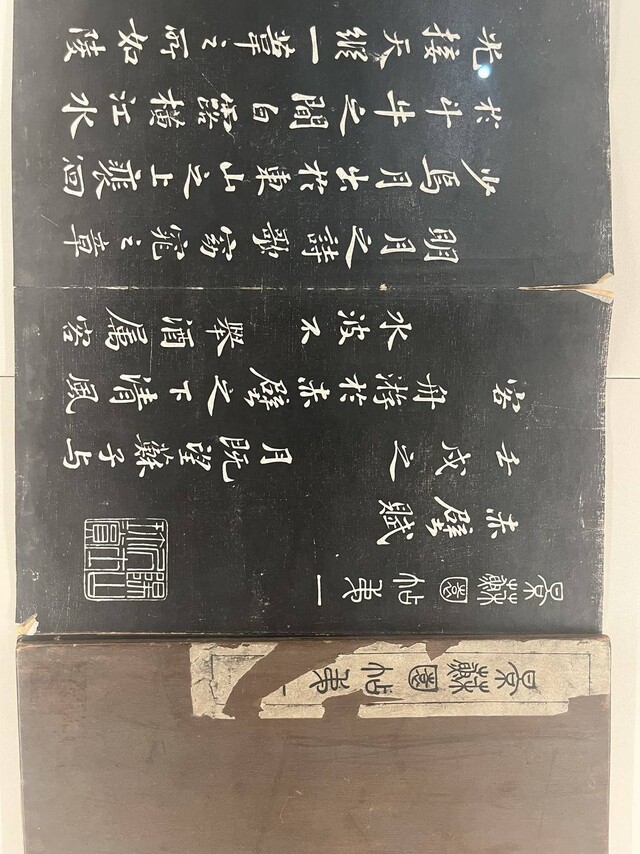 景蘇園帖弟一
景蘇園帖弟一
赤壁賦
壬戌之月既望蘇子与
客舟游於赤壁之下清風
水波不舉酒属客
明月之詩歌窈窕之章
少焉月出於東山之上裴洄
於斗牛之間白露橫江水
光接天縱一葦之所如陵